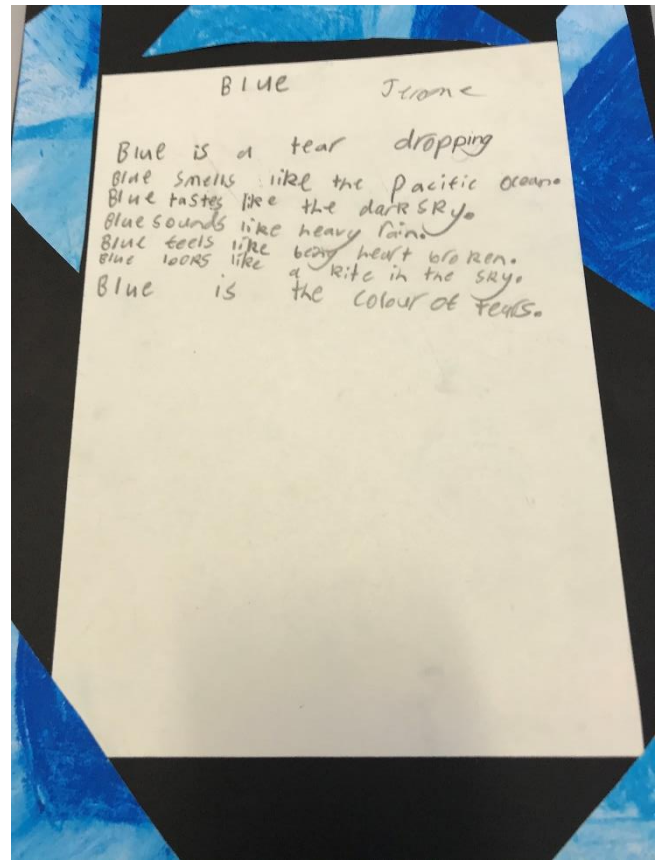 Blue Jerome
Blue is a tear dropping
Blue smells like the Pacific ocean.
Blue tastes like the dark sky.
Blue sounds like heavy rain.
Blue feels like being heart broken.
Blue looks like a kite in the sky.
Blue is the colour of tears.